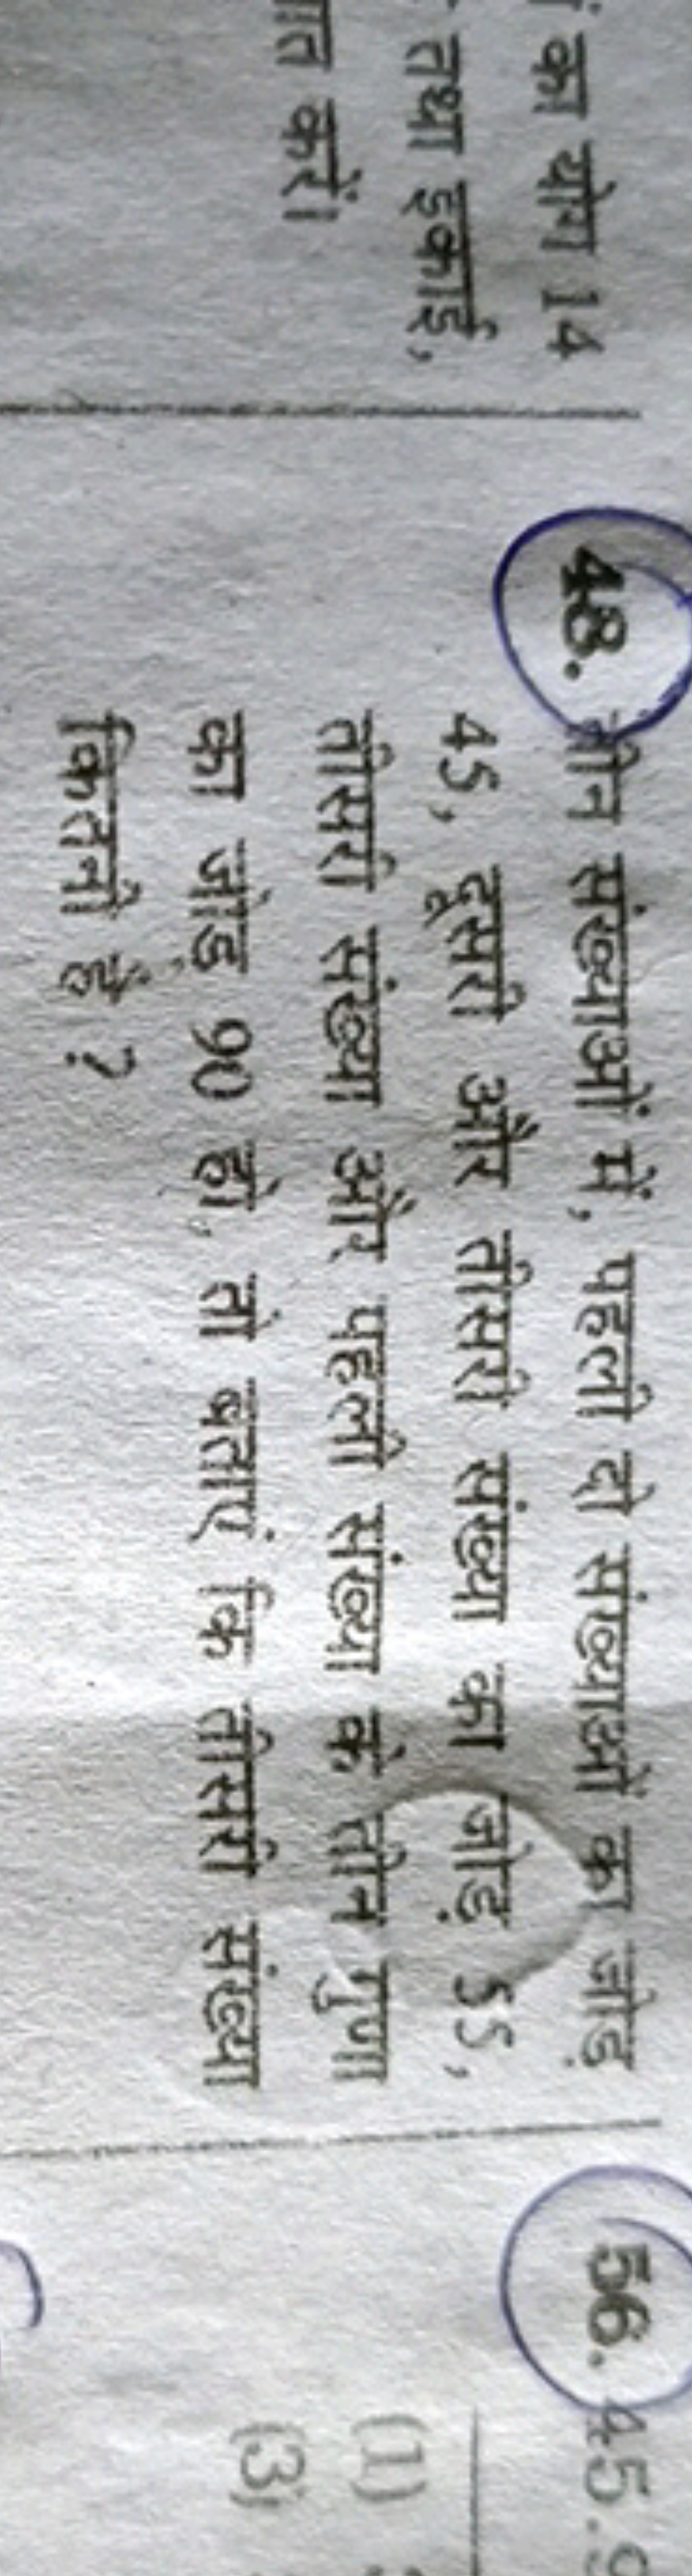 का योग 14
तथा इकाई,
करें।
48. तीन संख्याओं में, पहली दो संख्याओं का जोड़
45, दूसरी और तीसरी संख्या का जोड़ 55,
तीसरी संख्या और पहली संख्या के तीन गुणा
का जोड़ 90 हो, तो बताएं कि तीसरी संख्या
कितनी है ?
56. 45.
(1)
(3)